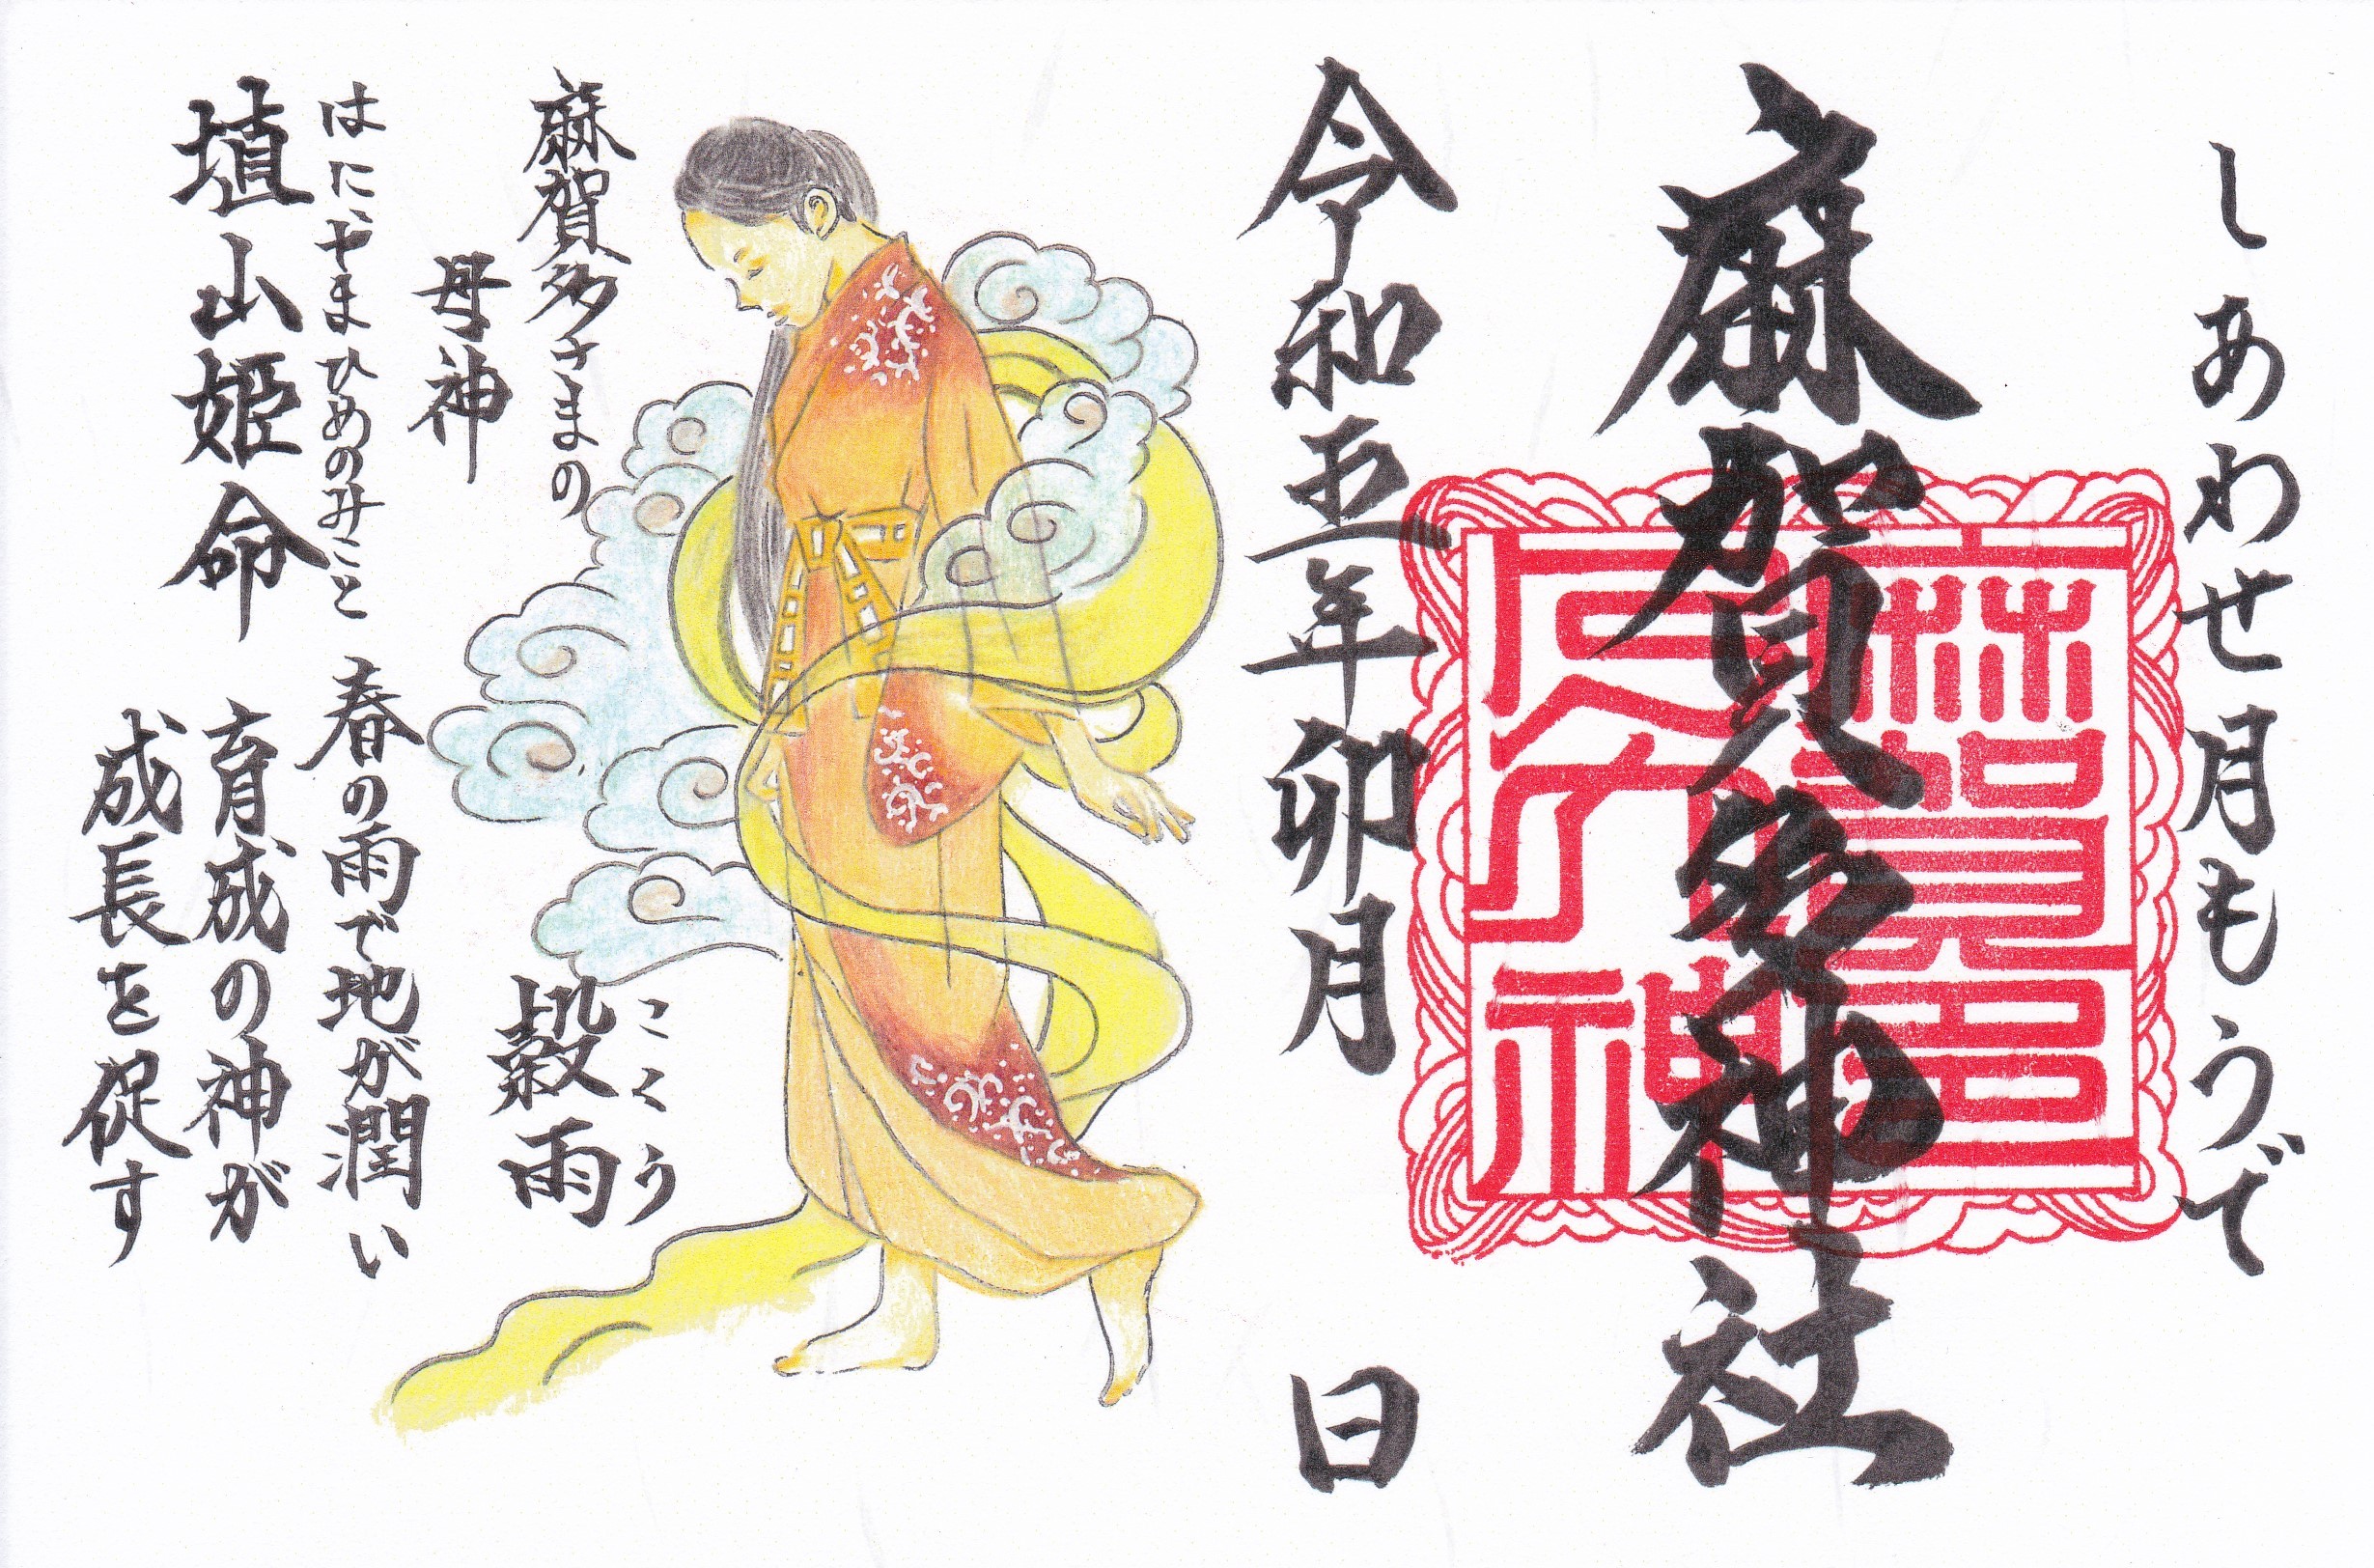 しあわせ月もうで
麻賀多神社
麻賀多
令和五年卯月　日
麻賀多さまの
母神
はにやまひめのみこと
埴山姫命
こくう
穀雨
春の雨で地が潤い
育成の神が
成長を促す